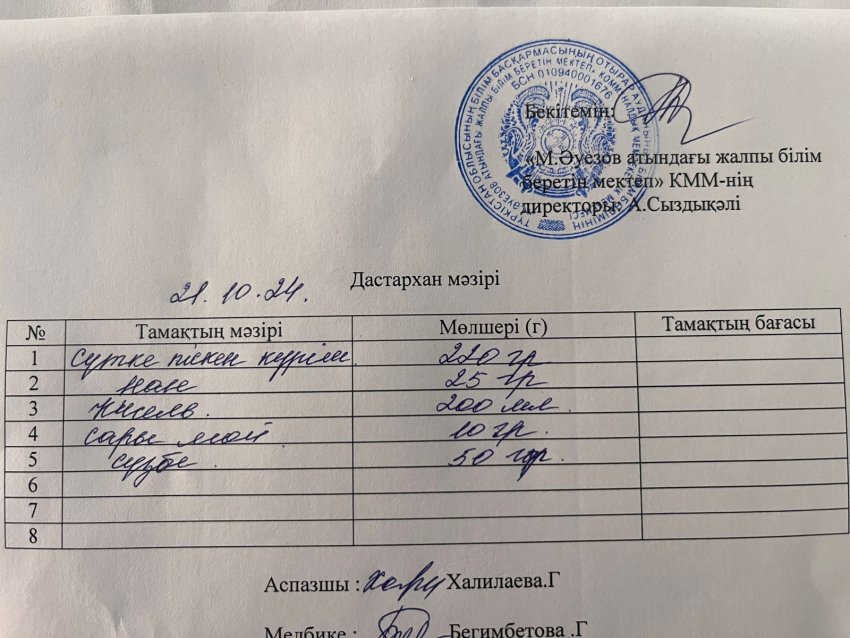 ТҮРКІСТАН ОБЛЫСЫНЫҢ БІЛІМ БАСҚАРМАСЫНЫҢ ОТЫРАР АУДАНЫНЫҢ БІЛІМ БӨЛІМІНІҢ
БСН 010940001676
Бекітемін:
«М.Әуезов атындағы жалпы білім
беретін мектеп» КММ-нің
директоры: А.Сыздықәлі
Дастархан мәзірі
21.10.24.
№ Тамақтың мәзірі Мөлшері (г) Тамақтың бағасы
1 Сүтке піскен күріш. 220 гр
2 нан 25 гр
3 Кисель. 200 мл.
4 сары май 10 гр.
5 сүзбе. 50 гр.
6
7
8
Аспазшы : Халилаева.Г
Медбике : Бегимбетова .Г